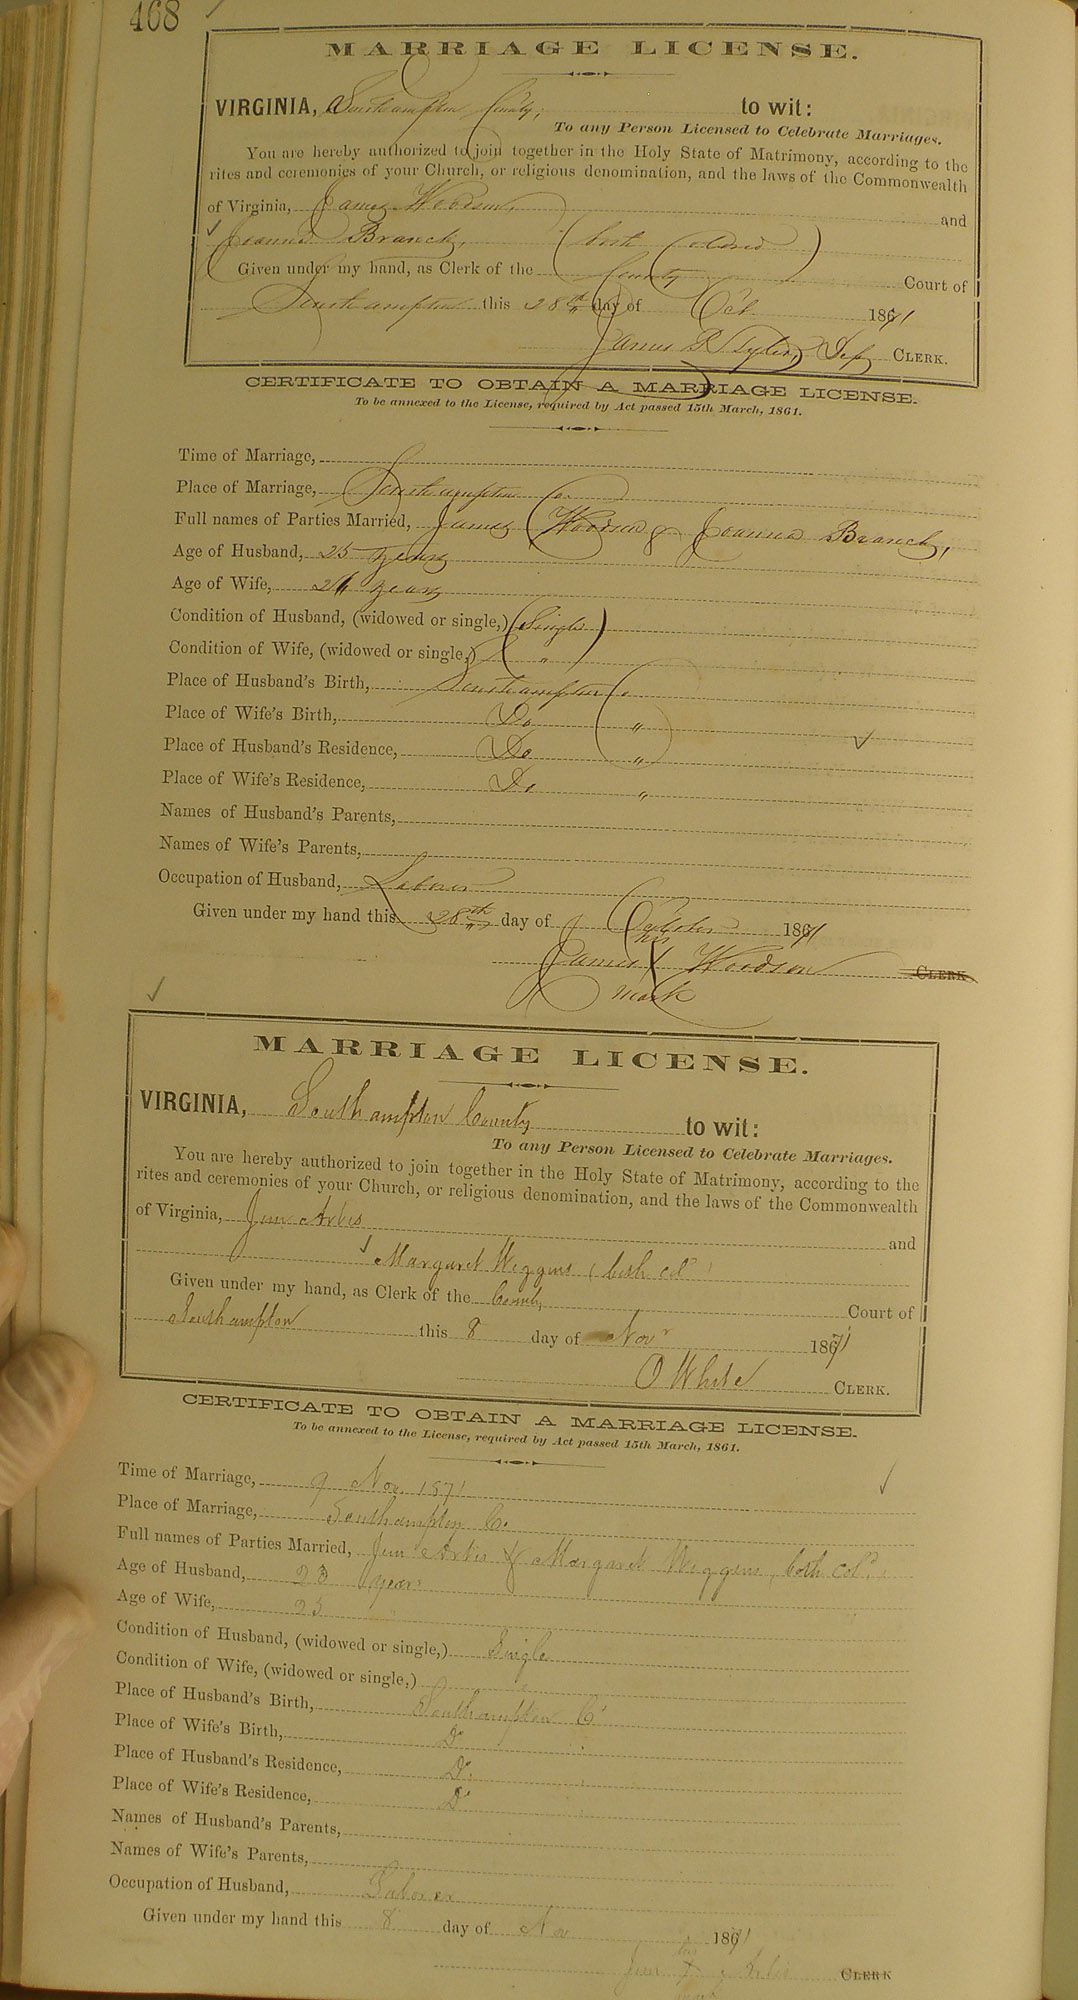 468
MARRIAGE LICENSE.
VIRGINIA, Southampton County, to wit:
To any Person Licensed to Celebrate Marriages.
You are hereby authorized to join together in the Holy State of Matrimony, according to the
rites and ceremonies of your Church, or religious denomination, and the laws of the Commonwealth
of Virginia, James Woodson, and
Joanna Branch, (both Colored)
Given under my hand, as Clerk of the County Court of
Southampton this 28th day of Oct 1871
James R Tyler, Dep CLERK.
CERTIFICATE TO OBTAIN A MARRIAGE LICENSE.
To be annexed to the License, required by Act passed 15th March, 1861.
Time of Marriage,
Place of Marriage, Southampton Co
Full names of Parties Married, James Woodson & Joanna Branch,
Age of Husband, 25 years
Age of Wife, years
Condition of Husband, (widowed or single,) (Single)
Condition of Wife, (widowed or single,) "
Place of Husband's Birth, Southampton Co
Place of Wife's Birth, Do "
Place of Husband's Residence, Do "
Place of Wife's Residence, Do "
Names of Husband's Parents,
Names of Wife's Parents,
Occupation of Husband, Laborer
Given under my hand this 28th day of October 1871
his
James X Woodson CLERK
mark
MARRIAGE LICENSE.
VIRGINIA, Southampton County to wit:
To any Person Licensed to Celebrate Marriages.
You are hereby authorized to join together in the Holy State of Matrimony, according to the
rites and ceremonies of your Church, or religious denomination, and the laws of the Commonwealth
of Virginia, Jim Artis
and
Margaret Wiggins (both cold)
Given under my hand, as Clerk of the County Court of
Southampton this 8 day of Novr 1871
O White CLERK.
CERTIFICATE TO OBTAIN A MARRIAGE LICENSE.
To be annexed to the License, required by Act passed 15th March, 1861.
Time of Marriage, 9 Nov. 1871
Place of Marriage, Southampton Co.
Full names of Parties Married, Jim Artis & Margaret Wiggins, both cold.
Age of Husband, 23 years
Age of Wife, 25 "
Condition of Husband, (widowed or single,) Single
Condition of Wife, (widowed or single,)
Place of Husband's Birth, Southampton Co
Place of Wife's Birth, Do
Place of Husband's Residence, Do
Place of Wife's Residence, Do
Names of Husband's Parents,
Names of Wife's Parents,
Occupation of Husband, Laborer
Given under my hand this 8 day of Nov 1871
his
Jim X Artis CLERK
mark